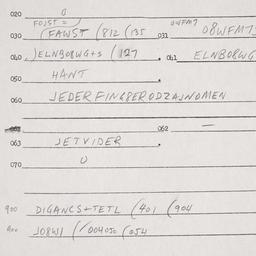 020 0
FOJST = 0WFM7
030 (FAWST (812 (135 031 08WFM7
040 )ELNB08WG+S (127 041 ELNB08WG
050 HANT
060 JEDERFINGRERODZAJWOMEN
062 —
063 JETVIDER
070 0
900 DIGANCS+TETL (401 (904
900 JO8WI (004050 (054